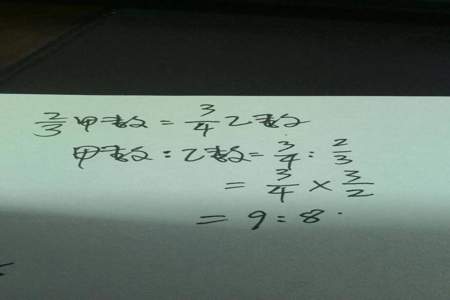 2/3 甲数 = 3/4 乙数
甲数 : 乙数 = 3/4 : 2/3
= 3/4 × 3/2
= 9 : 8